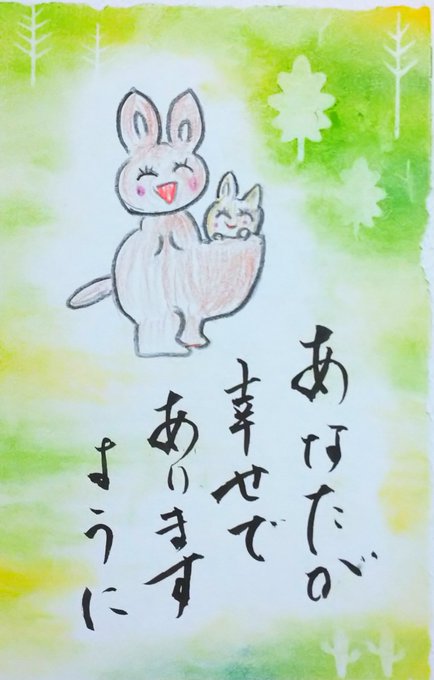 あなたが
幸せで
あります
ように